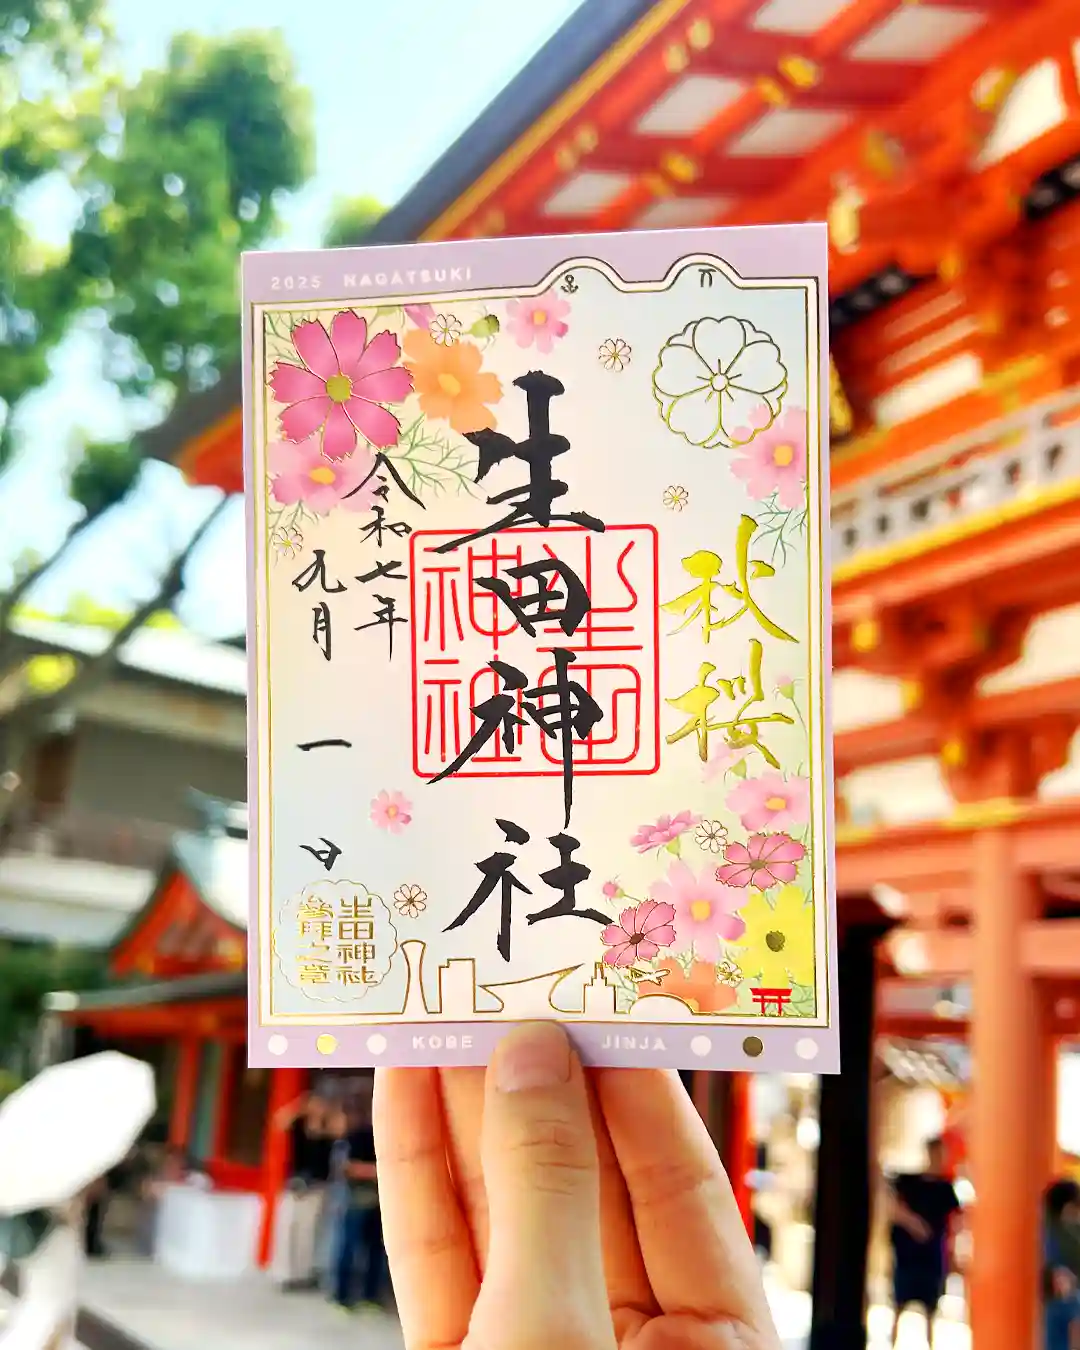 2025 NAGATSUKI
秋桜
生田神社
生田神社
令和七年
九月一日
生田神社
参拝之章
KOBE JINJA